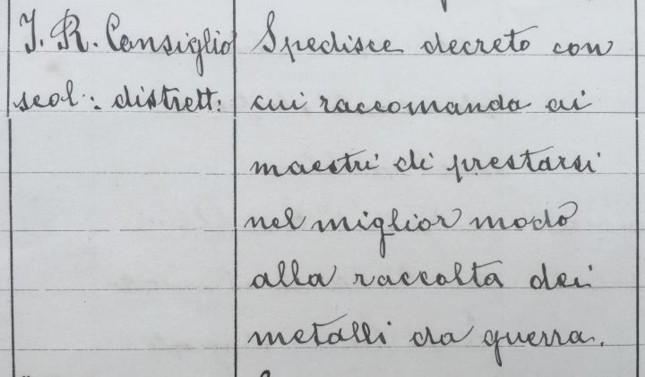 I. R. Consiglio
scol: distrett:
Spedisce decreto con
cui raccomanda ai
maestri di prestarsi
nel miglior modo
alla raccolta dei
metalli da guerra.